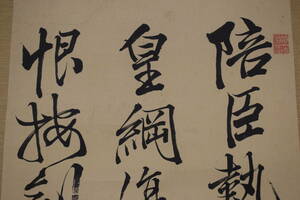 陪臣執
皇綱
恨按